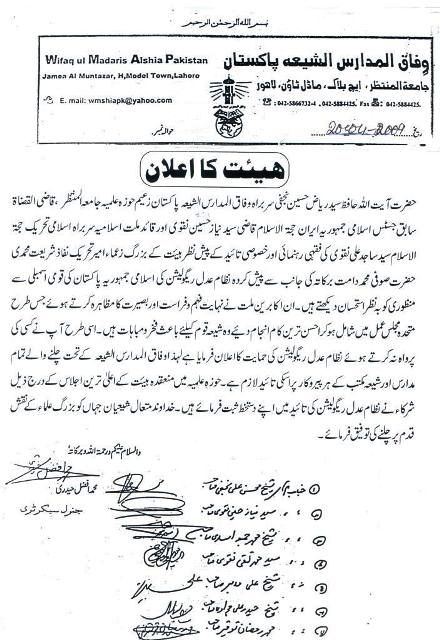 بسم اللہ الرحمٰن الرحیم
Wifaq ul Madaris Alshia Pakistan
Jamea Al Muntazar, H,Model Town,Lahore
E. mail: wmshiapk@yahoo.com
وفاق المدارس الشیعہ پاکستان
جامعۃ المنتظر، ایچ بلاک، ماڈل ٹاؤن، لاہور
☎ : 042-5866732-4 , 042-5884425. Fax : 042-5884425.
حوالہ نمبر
2009
ھیئت کا اعلان
حضرت آیت اللہ حافظ سید ریاض حسین نجفی سربراہ وفاق المدارس الشیعہ پاکستان زعیم حوزہ علمیہ جامعۃ المنتظر، قاضی القضاۃ
سابق جسٹس اسلامی جمہوریہ ایران حجۃ الاسلام قاضی سید نیاز حسین نقوی اور قائد ملت اسلامیہ سربراہ اسلامی تحریک حجۃ
الاسلام سید ساجد علی نقوی کی فقہی رہنمائی اور خصوصی تائید کے پیش نظر ہیئت کے بزرگ زعماء امیر تحریک نفاذ شریعت محمدی
حضرت صوفی محمد دامت برکاتہ کی جانب سے پیش کردہ نظام عدل ریگولیشن کی اسلامی جمہوریہ پاکستان کی قومی اسمبلی سے
منظوری کو بہ نظر استحسان دیکھتے ہیں۔ ان اکابرین ملت نے نہایت فہم و فراست اور بصیرت کا مظاہرہ کرتے ہوئے جس طرح
متحدہ مجلس عمل میں شامل ہو کر احسن ترین کام انجام دیے وہ شیعہ قوم کیلئے باعث فخر و مباہات ہیں۔ اسی طرح آپ نے کسی کی
پرواہ نہ کرتے ہوئے نظام عدل ریگولیشن کی حمایت کا اعلان فرمایا ہے لہذا وفاق المدارس الشیعہ کے تحت چلنے والے تمام
مدارس اور شیعہ مکتب کے ہر پیروکار پر اسکی تائید لازم ہے۔ حوزہ علمیہ میں منعقدہ ہیئت کے اعلیٰ ترین اجلاس کے درج ذیل
شرکاء نے نظام عدل ریگولیشن کی تائید میں اپنے دستخط ثبت فرمائے ہیں۔ خداوند متعال شیعیان جہاں کو بزرگ علماء کے نقش
قدم پر چلنے کی توفیق فرمائے۔
والسلام علیکم ورحمۃ اللہ و برکاتہ
محمد افضل حیدری
جنرل سیکرٹری
① شیخ محسن علی نجفی صاحب
② سید نیاز حسین نقوی صاحب
③ شیخ محمد اسدی صاحب
④ سید محمد تقی نقوی صاحب
⑤ شیخ علی صاحب
⑥ شیخ حیدر علی جوادی صاحب
⑦ محمد رمضان توقیر صاحب